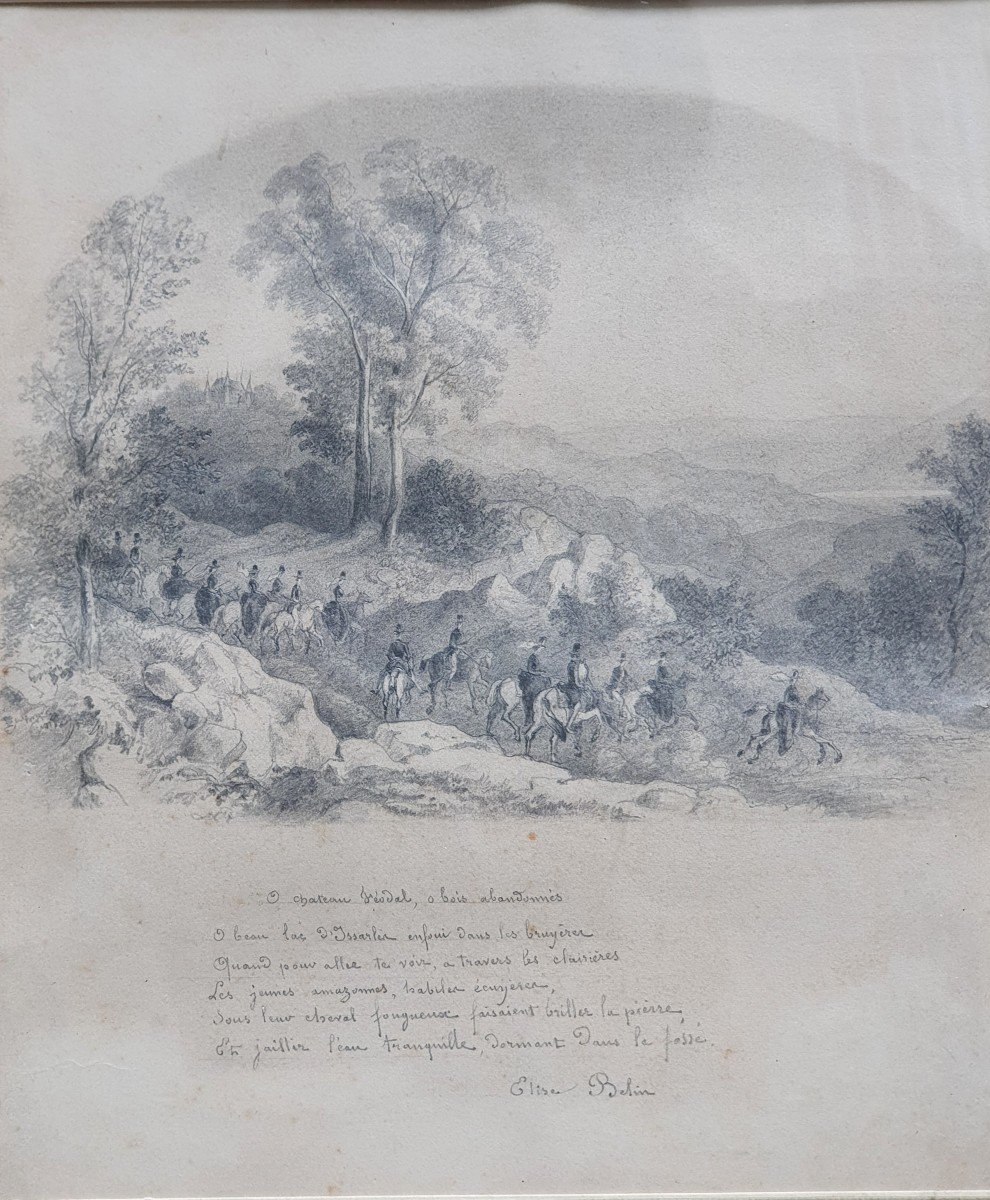 O chateau féodal, o bois abandonnés
O beau lac d'Issarlez enfoui dans les bruyères
Quand pour aller te voir, a travers les clairières
Les jeunes amazonnes, habiles écuyeres,
Sous leur cheval fougueux faisaient briller la pierre,
Et jaillir l'eau tranquille, dormant dans le fossé.
Elise Belin